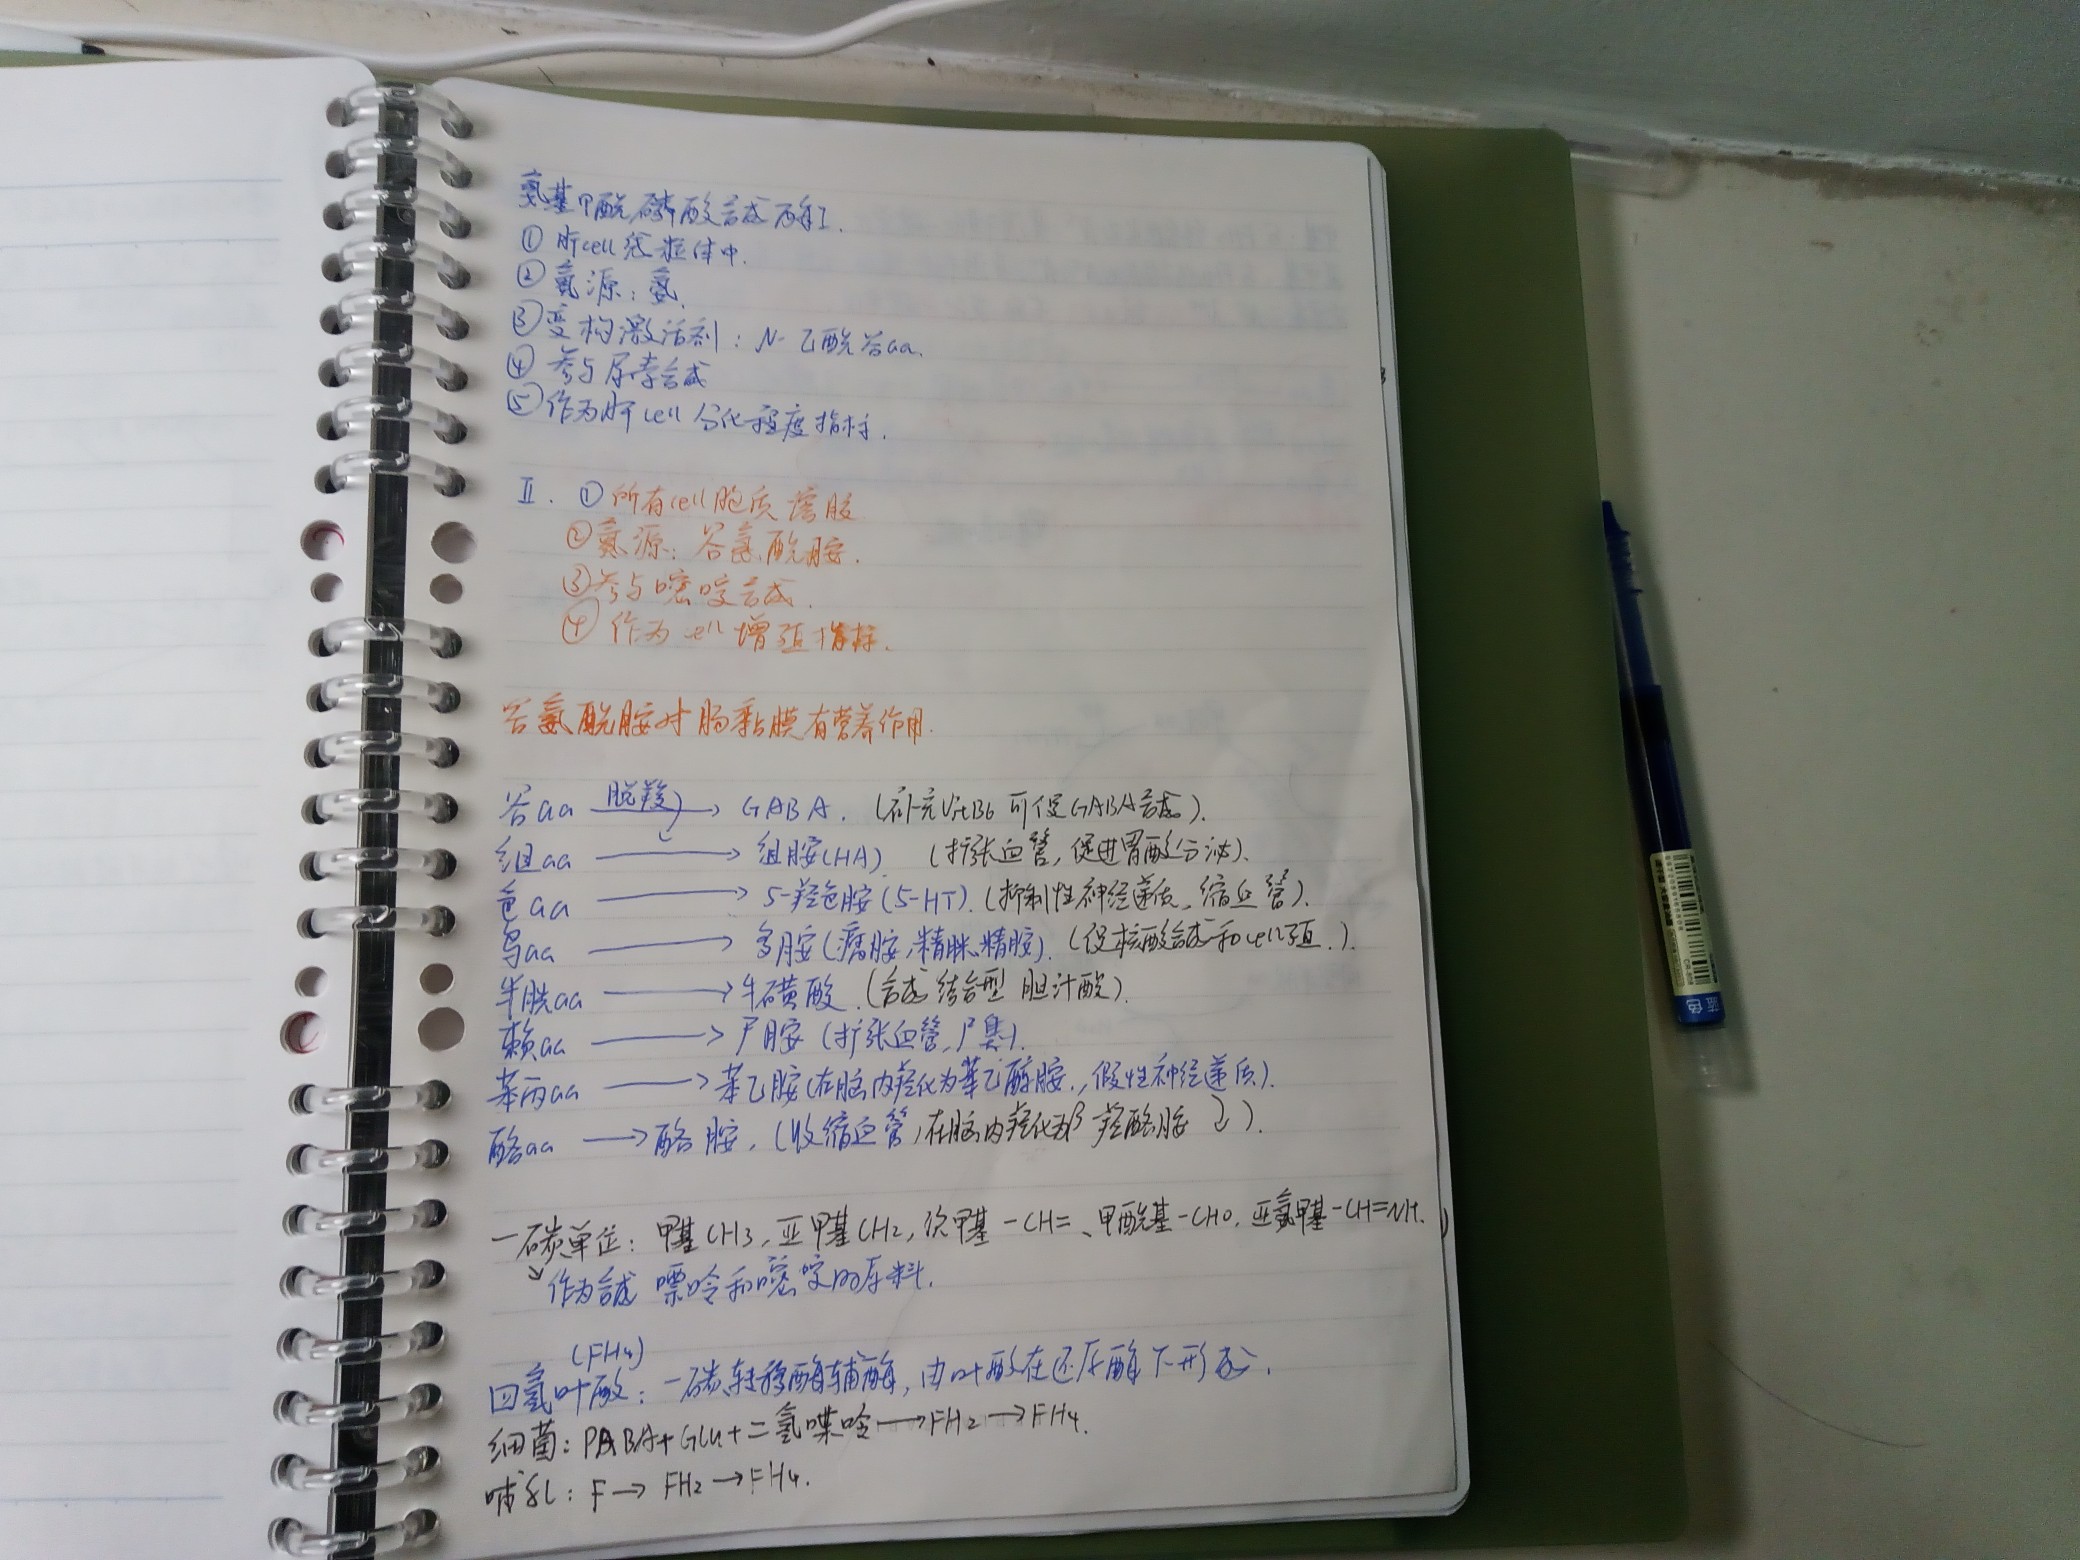 氨基甲酰磷酸合成酶I.
①肝cell线粒体中.
②氮源:氨.
③变构激活剂:N-乙酰谷aa.
④参与尿素合成
⑤作为肝cell分化程度指标.
II.①所有cell胞质溶胶
②氮源:谷氨酰胺.
③参与嘧啶合成.
④作为cell增殖指标.
谷氨酰胺对肠黏膜有营养作用.
谷aa 脱羧→ GABA.(补充VitB6可促GABA合成).
组aa → 组胺(HA).(扩张血管,促进胃酸分泌).
色aa → 5-羟色胺(5-HT).(抑制性神经递质,缩血管).
鸟aa → 多胺(腐胺,精脒,精胺).(促核酸合成和cell殖.).
半胱aa → 牛磺酸.(合成结合型胆汁酸).
赖aa → 尸胺(扩张血管,尸臭).
苯丙aa → 苯乙胺(在脑内羟化为苯乙醇胺.,假性神经递质).
酪aa → 酪胺.(收缩血管,在脑内羟化为β羟酪胺↓).
一碳单位:甲基CH3,亚甲基CH2,次甲基-CH=、甲酰基-CHO,亚氨甲基-CH=NH.
↘作为合成嘌呤和嘧啶的原料.
(FH4)
四氢叶酸:一碳转移酶辅酶,由叶酸在还原酶下形成.
细菌:PABA+Glu+二氢喋呤→FH2→FH4.
哺乳:F→FH2→FH4.
蓝色